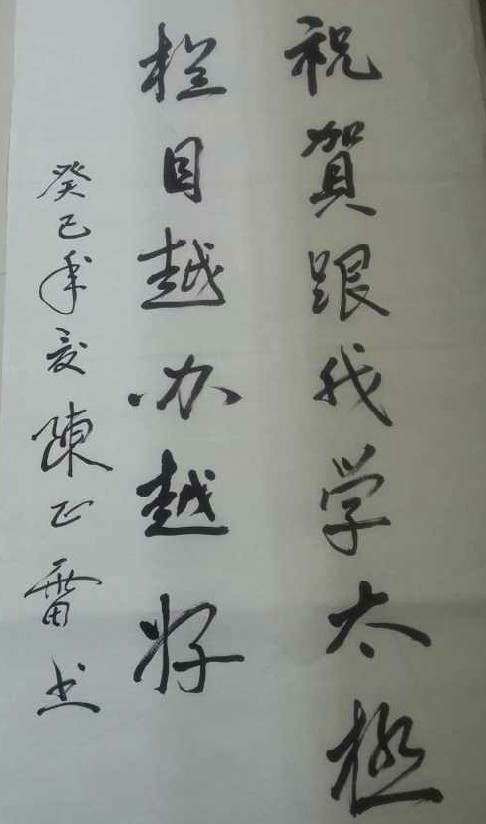 祝賀跟我学太极
栏目越办越好
癸巳年夏陳正雷书